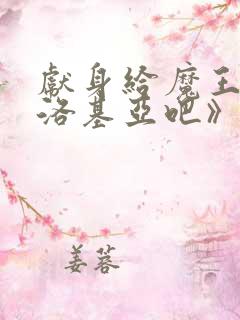 獻身給魔王
洛基亞吧》
姜蓉